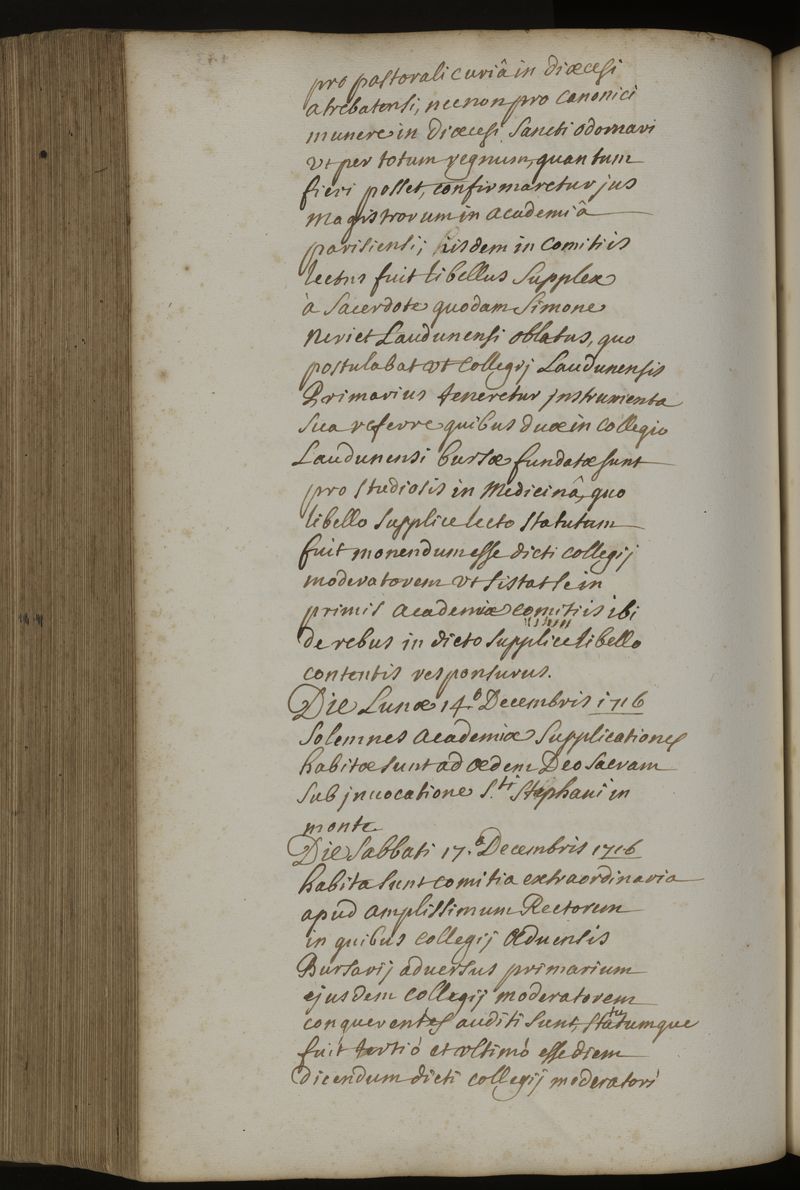 pro pastorali curiâ in diœcesi
atrebatensi, necnon pro canonici
munere in diœcesi Sancti odomari
vt per totum regnum, quantum
fieri posset, confirmaretur jus
magistrorum in academiâ
parisiensi; iisdem in comitiis
lectus fuit libellus supplex
à Sacerdote quodam Simone
Laudunensi oblatus, quo
postulabat vt collegij Laudunensis
Primarius teneretur jnstrumenta
sua referre quibus duæ in collegio
Laudunensi bursæ fundatæ sunt
pro studiosis in Medicinâ, quo
libello supplice lecto statutum
fuit monendum esse dicti collegij
moderatorem vt sistat se in
primis academiæ comitiis ibi
de rebus in dicto supplice libello
contentis responsurus.
Die Lunæ 14.ª Decembris 1716
Solemnes academiæ supplicationes
habitæ sunt ad ædem Deo sacram
sub jnuocatione S.ti Stephani in
monte
Die Sabbati 17.ª Decembris 1716
habita sunt comitia extraordinaria
apud amplissimum Rectorem
in quibus collegij Æduensis
Bursarij aduersus primarium
ejusdem collegij moderatorem
conquerentes auditi sunt, statutumque
fuit tertiò et vltimò esse diem
dicendum dicti collegij moderatori